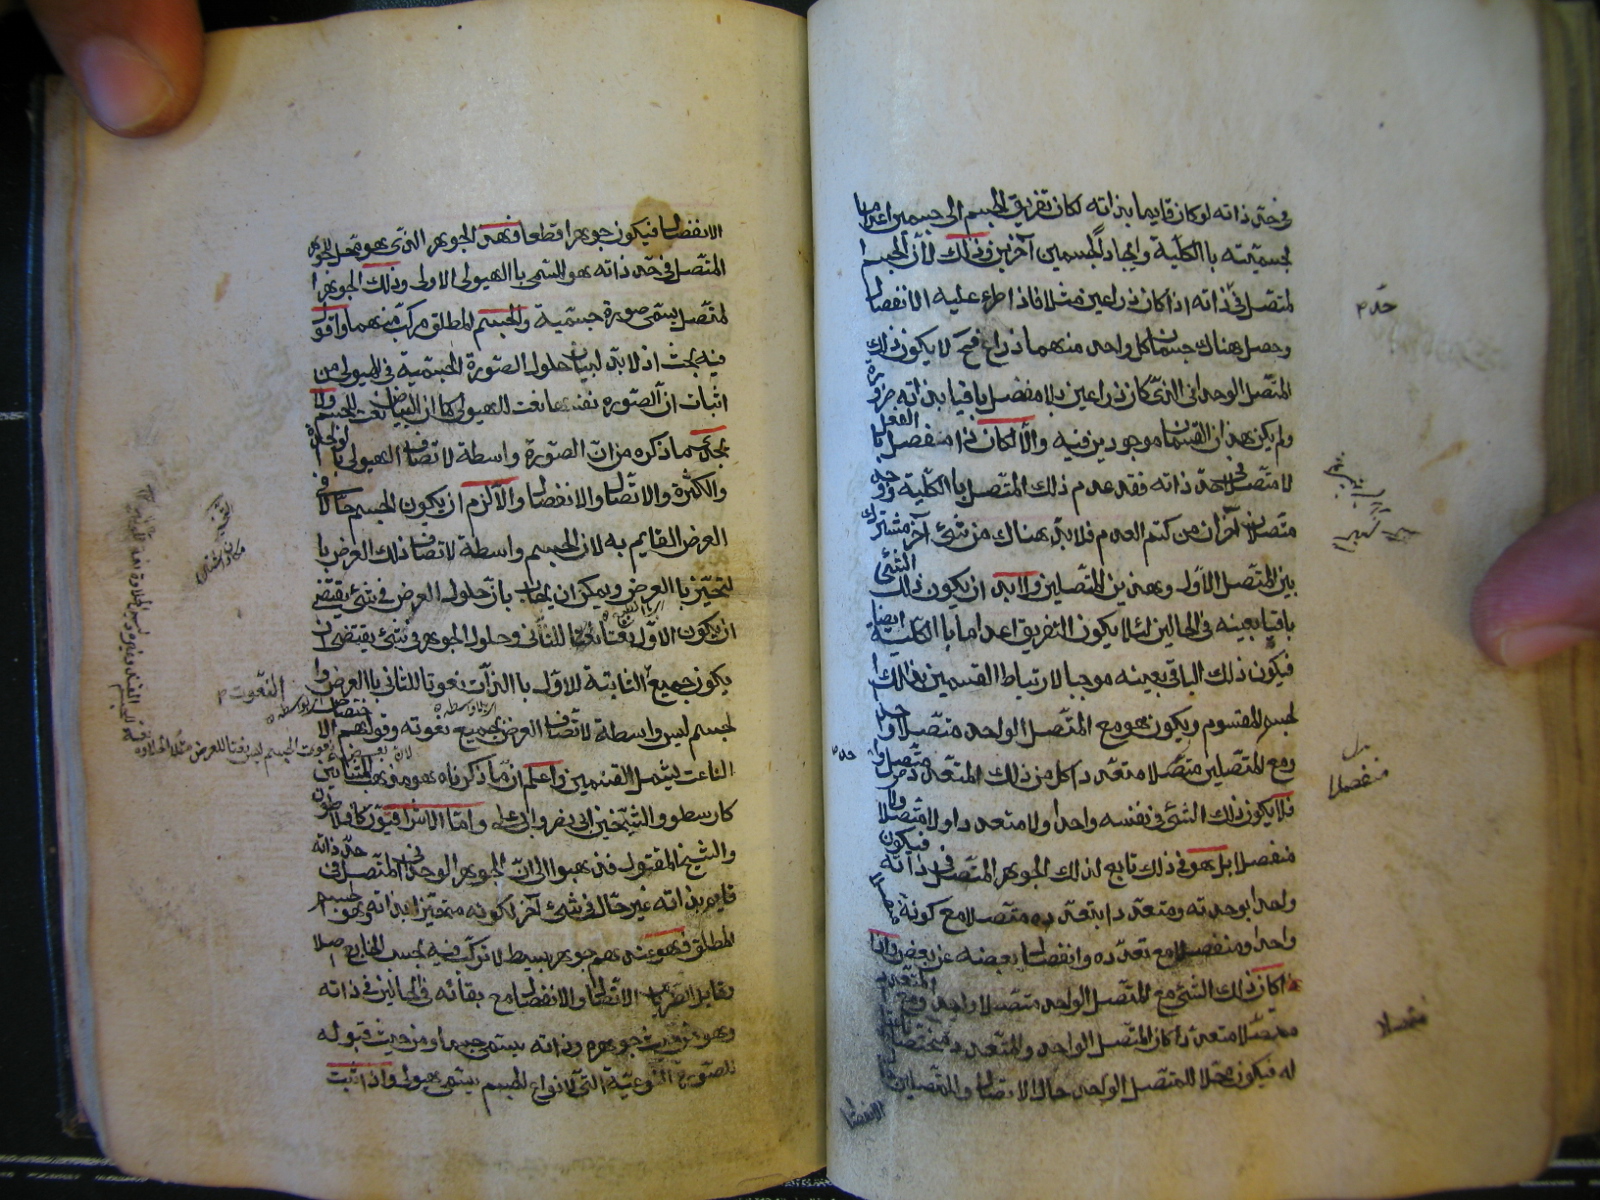 في حد ذاته لو كان قايما بذاته لكان تفريق الجسم الى جسمين اعداما
لجسميته باالكلية وايجادا لجسمين آخرين وذلك لان الجسم
المتصل في ذاته اذا كان ذراعين مثلا فاذا طرء عليه الانفصال
وحصل هناك جسمان كل واحد منهما ذراع فح لا يكون ذلك
المتصل الوحداني الذي كان ذراعين بلا مفصل باقيا بذاته ضرورة
ولم يكن هذان القسمان موجودين فيه والا لكان ذا منفصل بالفعل
لا متصل في حد ذاته فقد عدم ذلك المتصل باالكلية ووجد
متصلان آخران من كتم العدم فلابد هناك من شئ آخر مشترك
بين المتصل الاول وهذين المتصلين ولا بد ان يكون ذلك الشئ
باقيا بعينه في الحالين لئلا يكون التفريق اعداما باالكلية ايضا
فيكون ذلك الباقي بعينه موجبا لارتباط القسمين بذلك
الجسم المقسوم ويكون هو مع المتصل الواحد متصلا واحدا
ومع المتصلين متصلا متعددا كل من ذلك المتعدد متصل واحد
فلا يكون ذلك الشئ في نفسه واحدا ولا متعددا ولا متصلا ولا
منفصلا بل هو في ذلك تابع لذلك الجوهر المتصل في ذاته فيكون
واحدا بوحدته ومتعددا بتعدده متصلا مع كونه متصلا
واحدا ومنفصلا مع تعدده وانفصال بعضه عن بعض واذا
كان ذلك الشئ مع المتصل الواحد متصلا واحدا ومع المتعدد
متصلا متعددا كان المتصل الواحد والمتعدد مختصا
له فيكون محلا للمتصل الواحد حال الاتصال وللمتصلين
الانفصال
الانفصال فيكون جوهرا قطعا فهذا الجوهر الذي هو محل للجوهر
المتصل في حد ذاته هو المسمى باالهيولى الاولى وذلك الجوهر
المتصل يسمى صورة جسمية والجسم المطلق مركب منهما واقول
فيه بحث اذ لابد لبيان حلول الصورة الجسمية في الهيولى من
اثبات ان الصورة نفسها نعت للهيولى كما ان البياض نعت للجسم ولا
يجدي ما ذكره من ان الصورة واسطة لاتصاف الهيولى بالوحدة
والكثرة والاتصال والانفصال والا لزم ان يكون الجسم حالا في
العرض القايم به لان الجسم واسطة لاتصاف ذلك العرض با
لتحيز باالعرض ويمكن ان يجاب بان حلول العرض في شئ يقتضي
ان يكون الاول نعتا للثاني وحلول الجوهر في شئ يقتضي ان
يكون جميع الثابتة للاول باالذات نعوتا للثاني باالعرض وا
لجسم ليس واسطة لاتصاف العرض بجميع نعوته وقولهم الاختصاص
الناعت يشمل القسمين واعلم ان ما ذكرناه هو مذهب المشائين
كارسطو والشيخين ابي نصر وابي علي واما الاشراقيون كافلاطون
والشيخ المقتول فذهبوا الى ان الجوهر الوحداني المتصل في حد ذاته
قايم بذاته غير حال في شئ آخر لكونه متحيزا بذاته وهو الجسم
المطلق فهو عندهم جوهر بسيط لا تركب فيه بحسب الخارج اصلا
وقابل لطريان الاتصال والانفصال مع بقائه في الحالين في ذاته
وهو من حيث جوهره وذاته يسمى جسما ومن حيث قبوله
للصورة النوعية التي لانواع الجسم يسمى هيولى واذا ثبت
النعوت
منفصلا
متصلا